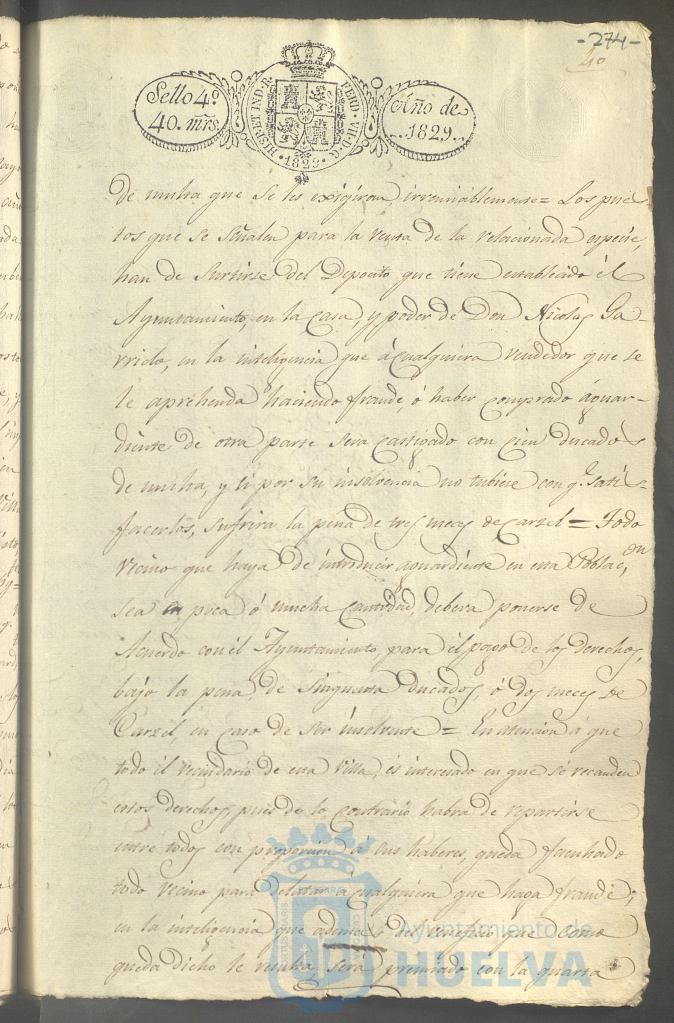 -274-
40
Sello 4º
40. mrs.
HISP. ET IND. R. FERD. VII. D. G. 1829
Año de
1829.
de multa que se les exigiran irremisiblemente = Los pues
tos que se señalen para la venta de la relacionada especie,
han de surtirse del Deposito que tiene establecido él
Ayuntamiento, en la Casa, y poder de Don Nicolas Ga-
rrido, en la inteligencia que á cualquiera vendedor que se
le aprehenda haciendo fraude, ó haber comprado aguar-
diente de otra parte sera castigado con cien ducados
de multa, y si por su insolvencia no tubiere con q.e satis-
facerlos, sufrira la pena de tres meces de Carzel = Todo
vecino que haya de introducir aguardiente en esta Poblac.on
sea en poca ó mucha cantidad, debera ponerse de
Acuerdo con él Ayuntamiento, para él pago de los derechos,
bajo la pena, de Singuenta ducados, ó dos meces de
Carzél, en caso de ser insolvente = En atencion á que
todo él vecindario de esta Villa, es interesado en que se recauden
estos derechos, pues de lo contrario habra de repartirse
entre todos con proporcion á sus haberes, queda facultado
todo vecino para delatar á cualquiera que haga fraude;
en la inteligencia que ademas del beneficio que como
queda dicho le resulta, será premiado con la quarta
Ayuntamiento de
HUELVA